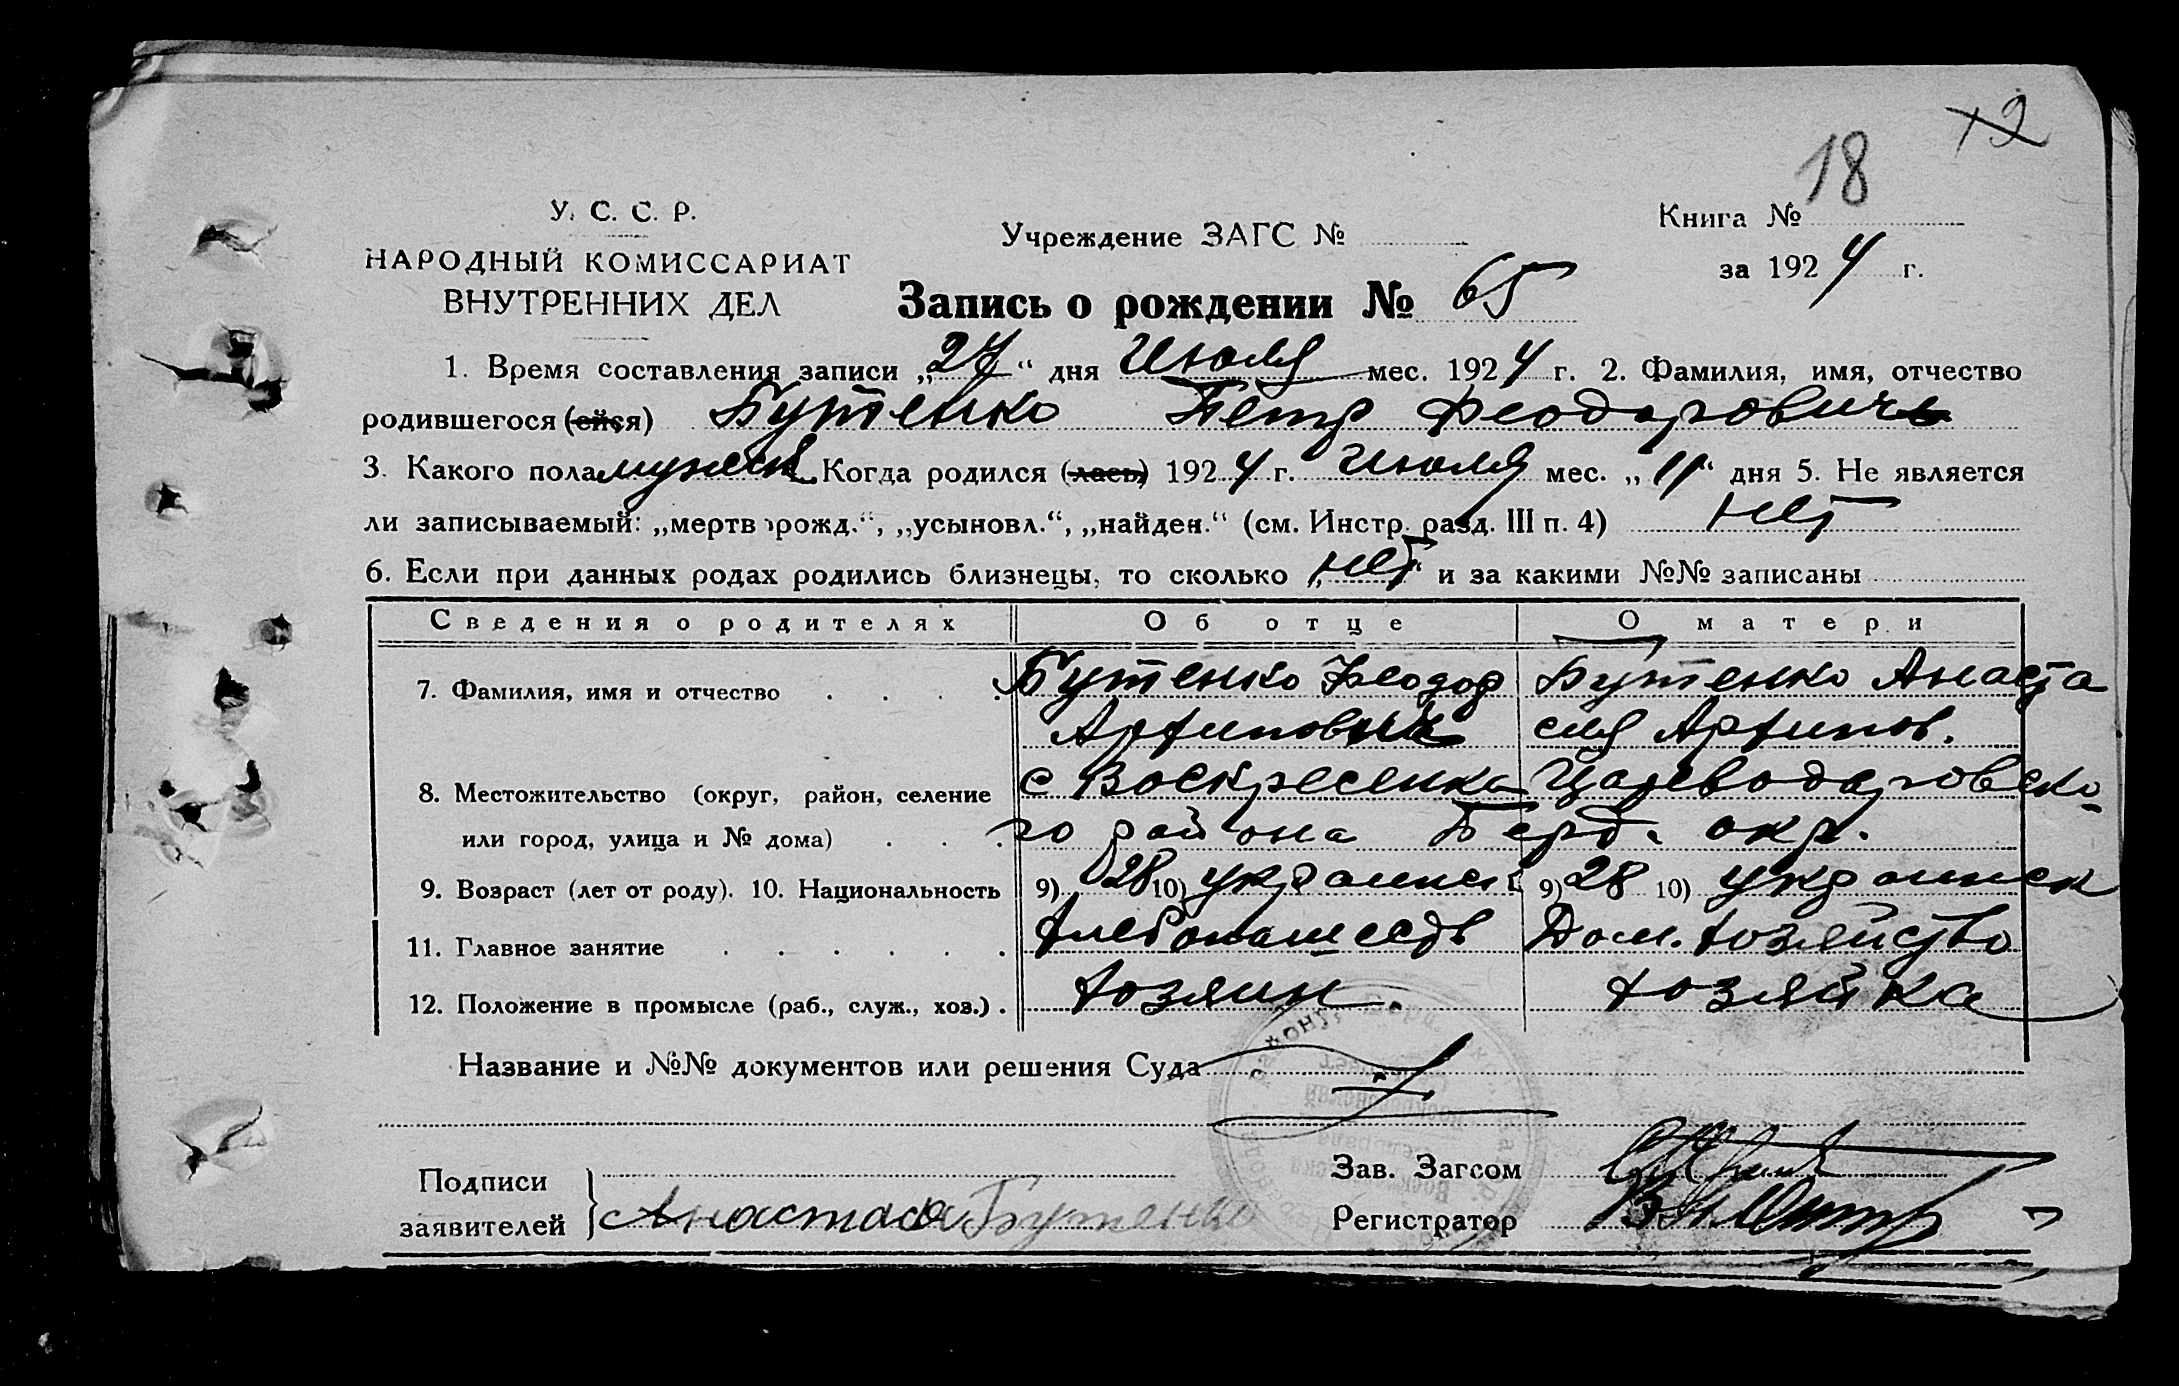 12
18
У. С. С. Р.
НАРОДНЫЙ КОМИССАРИАТ
ВНУТРЕННИХ ДЕЛ
Учреждение ЗАГС №
Книга №
за 1924 г.
Запись о рождении № 65
1. Время составления записи „27“ дня Июля мес. 1924 г. 2. Фамилия, имя, отчество
родившегося (ейся) Бутенко Петр Феодорович
3. Какого пола мужск Когда родился (лась) 1924 г. Июля мес. „11“ дня 5. Не является
ли записываемый: „мертворожд.“, „усыновл.“, „найден.“ (см. Инстр. разд. III п. 4) нет
6. Если при данных родах родились близнецы, то сколько „нет“ и за какими №№ записаны
Сведения о родителях Об отце О матери
7. Фамилия, имя и отчество . . . . Бутенко Феодор Бутенко Анаста
Архипович сия Архипов.
8. Местожительство (округ, район, селение с Воскресенка Цареводаровско-
или город, улица и № дома) . . . го района Берд. окр.
9. Возраст (лет от роду). 10. Национальность 9) 28 10) украинск 9) 28 10) украинск
11. Главное занятие . . . . . . Хлебопашедъ Дом. хозяйство
12. Положение в промысле (раб., служ., хоз.) . хозяин. хозяйка
Название и №№ документов или решения Суда
Подписи
заявителей
Анастасия Бутенко
Зав. Загсом
Регистратор